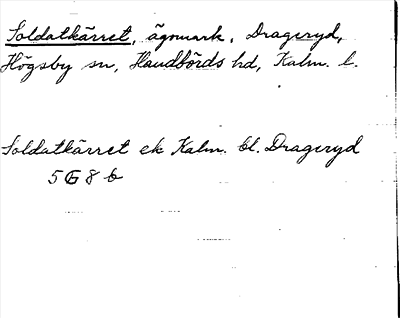 Soldatkärret, ägomark, Drageryd,
Högsby sn, Handbörds hd, Kalm. l.
Soldatkärret ek Kalm. bl. Drageryd
5 G 8 b